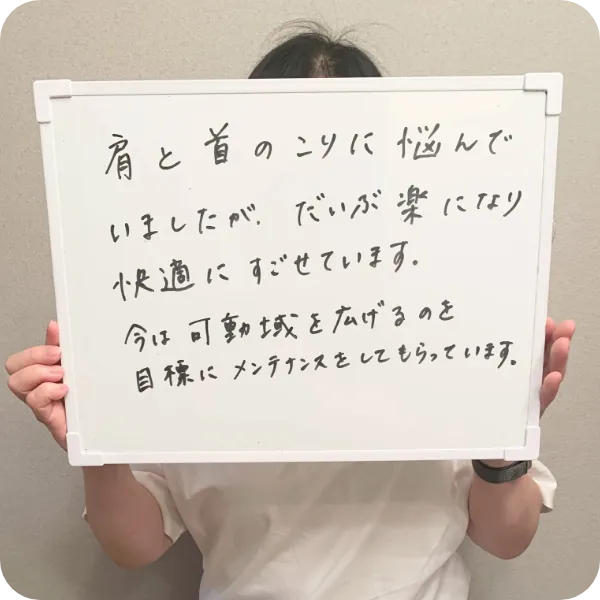 肩と首のこりに悩んで
いましたが、だいぶ楽になり
快適にすごせています。
今は可動域を広げるのを
目標にメンテナンスをしてもらっています。